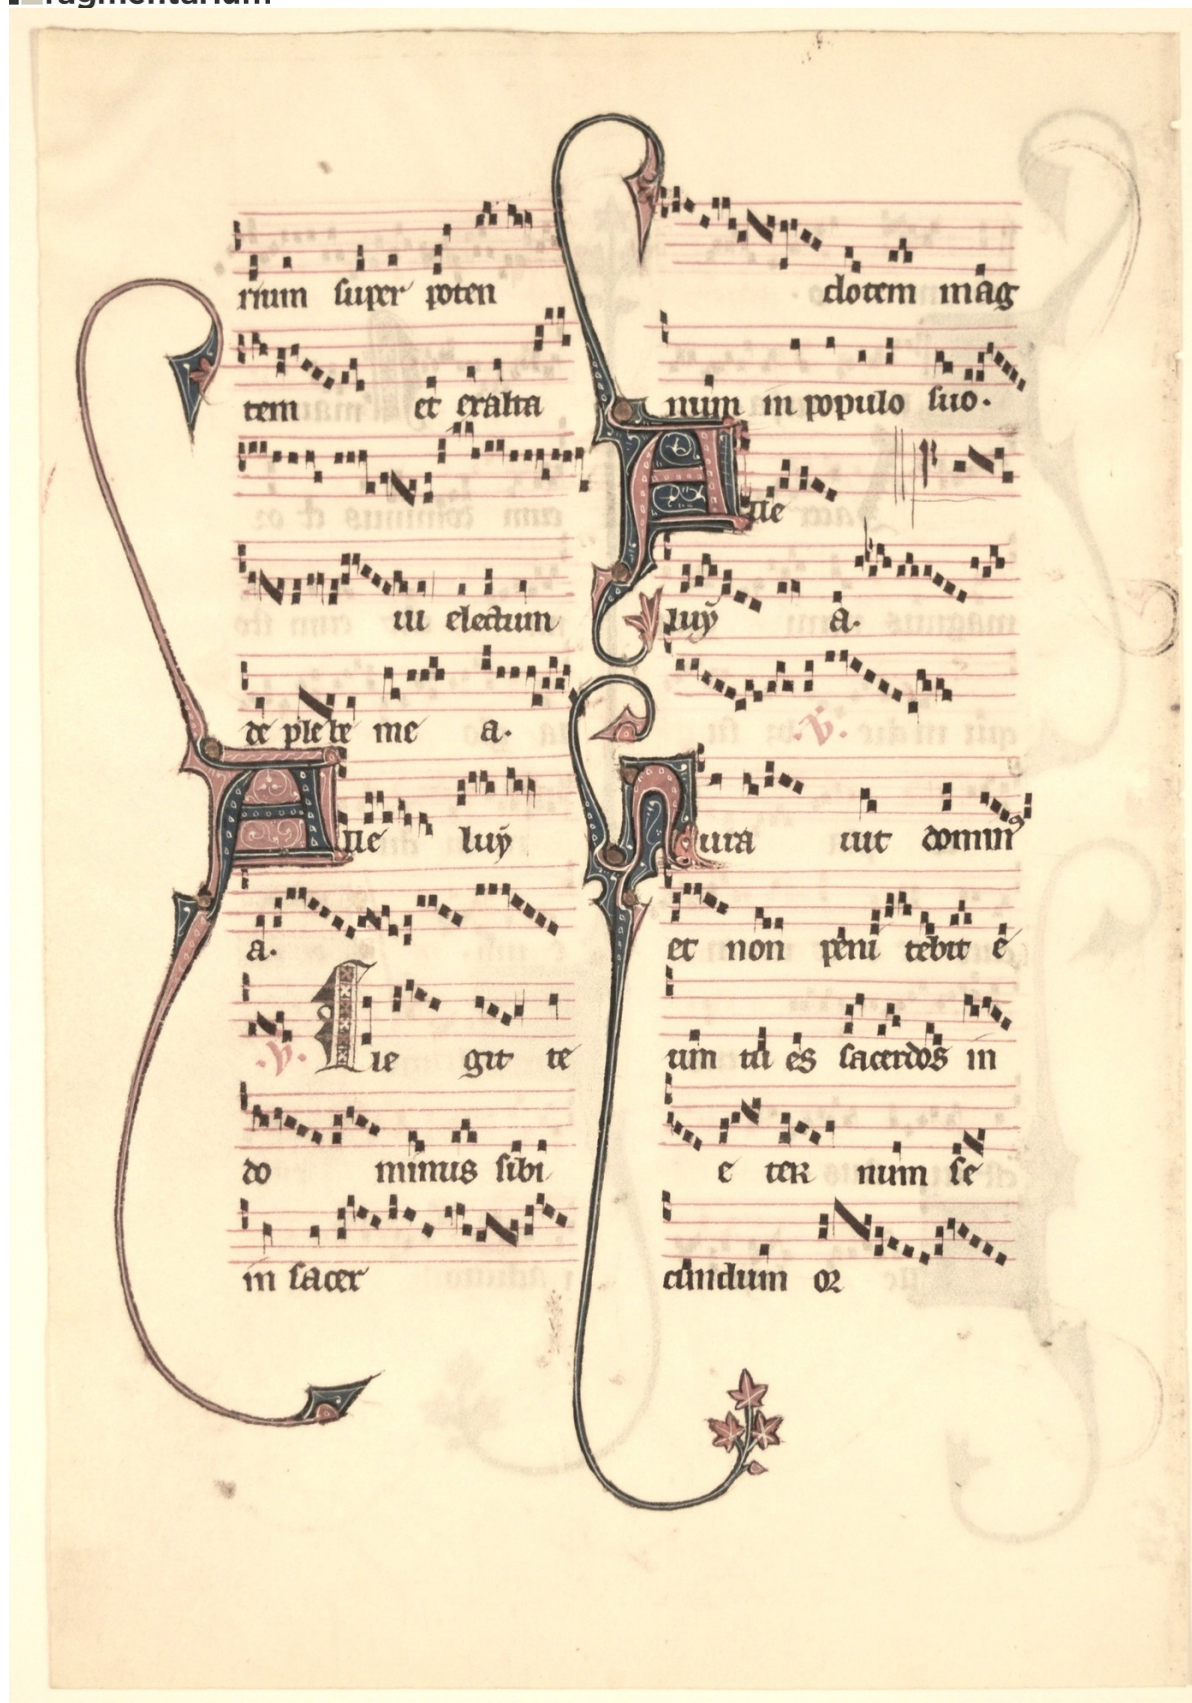 ragmentarium
rium super poten
tem et exalta
ui electum
de plebe me a.
A lle luy
a.
℣. E le git te
do minus sibi
in sacer
dotem mag
num in populo suo.
A lle
luy a.
℣.
Iura uit domin⁹
et non peni tebit e
um tu es sacerdos in
e ter num se
cundum or